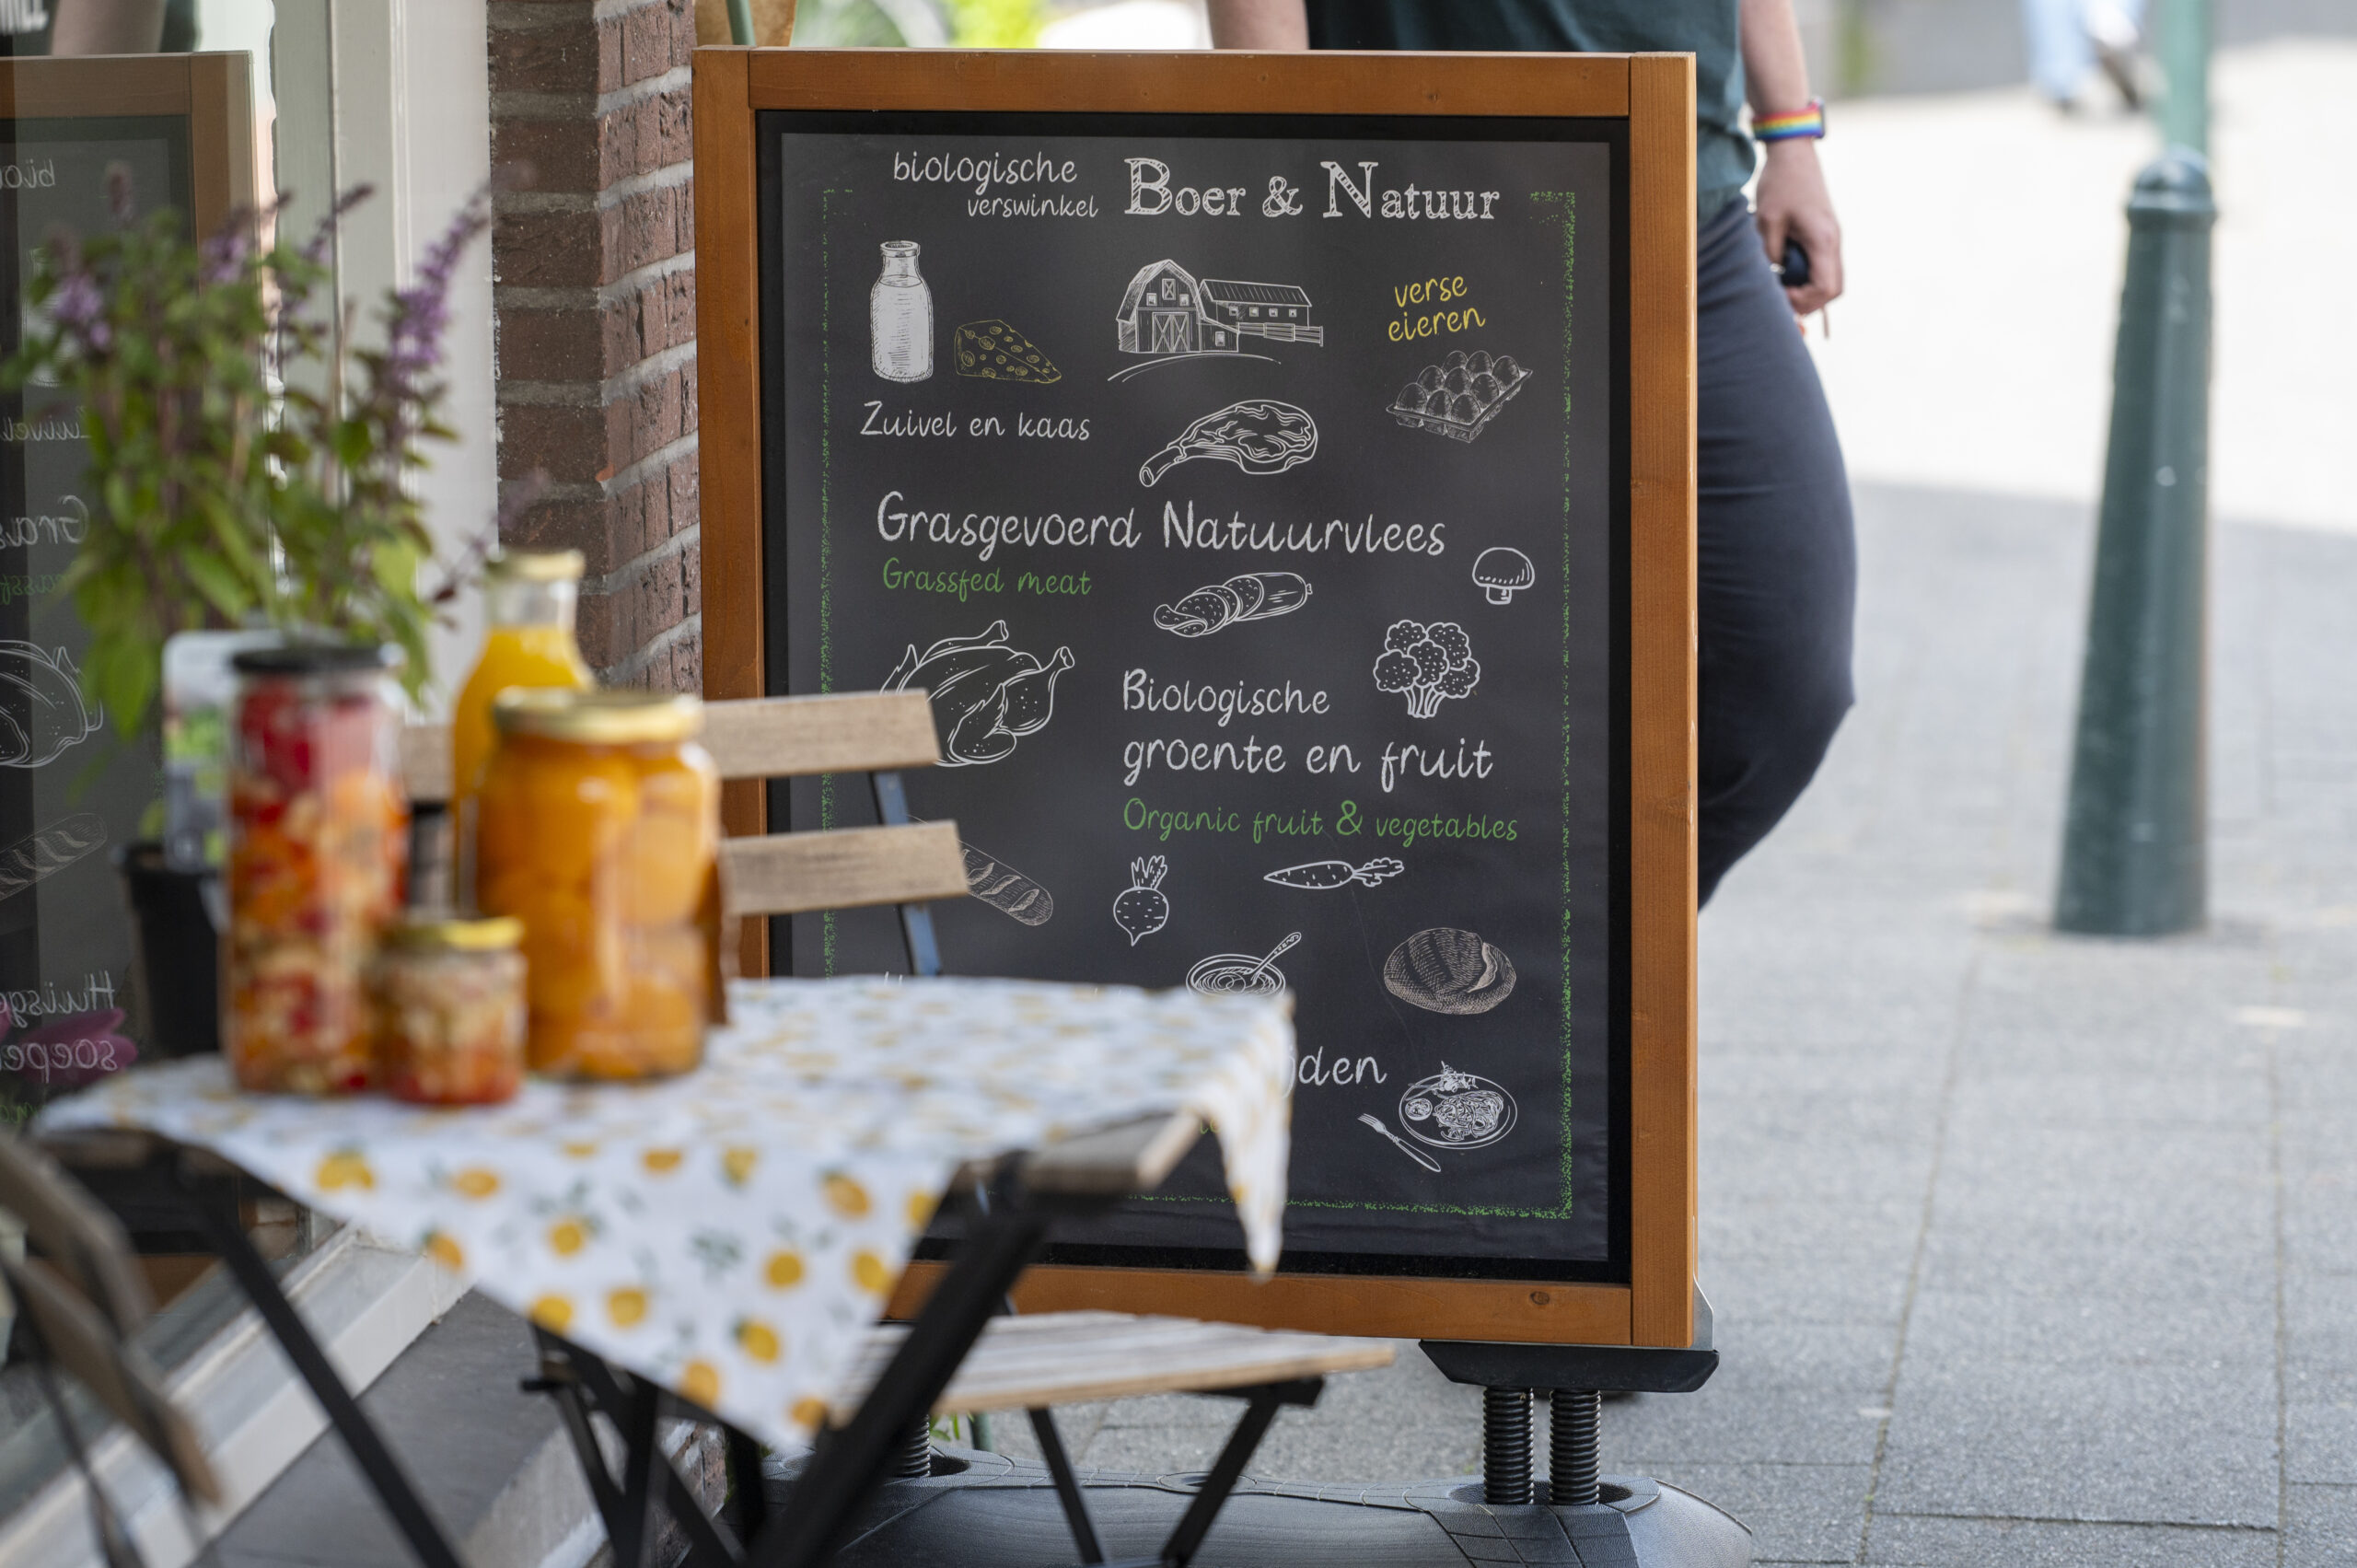 biologische
verswinkel
Boer & Natuur
verse
eieren
Zuivel en kaas
Grasgevoerd Natuurvlees
Grassfed meat
Biologische
groente en fruit
Organic fruit & vegetables